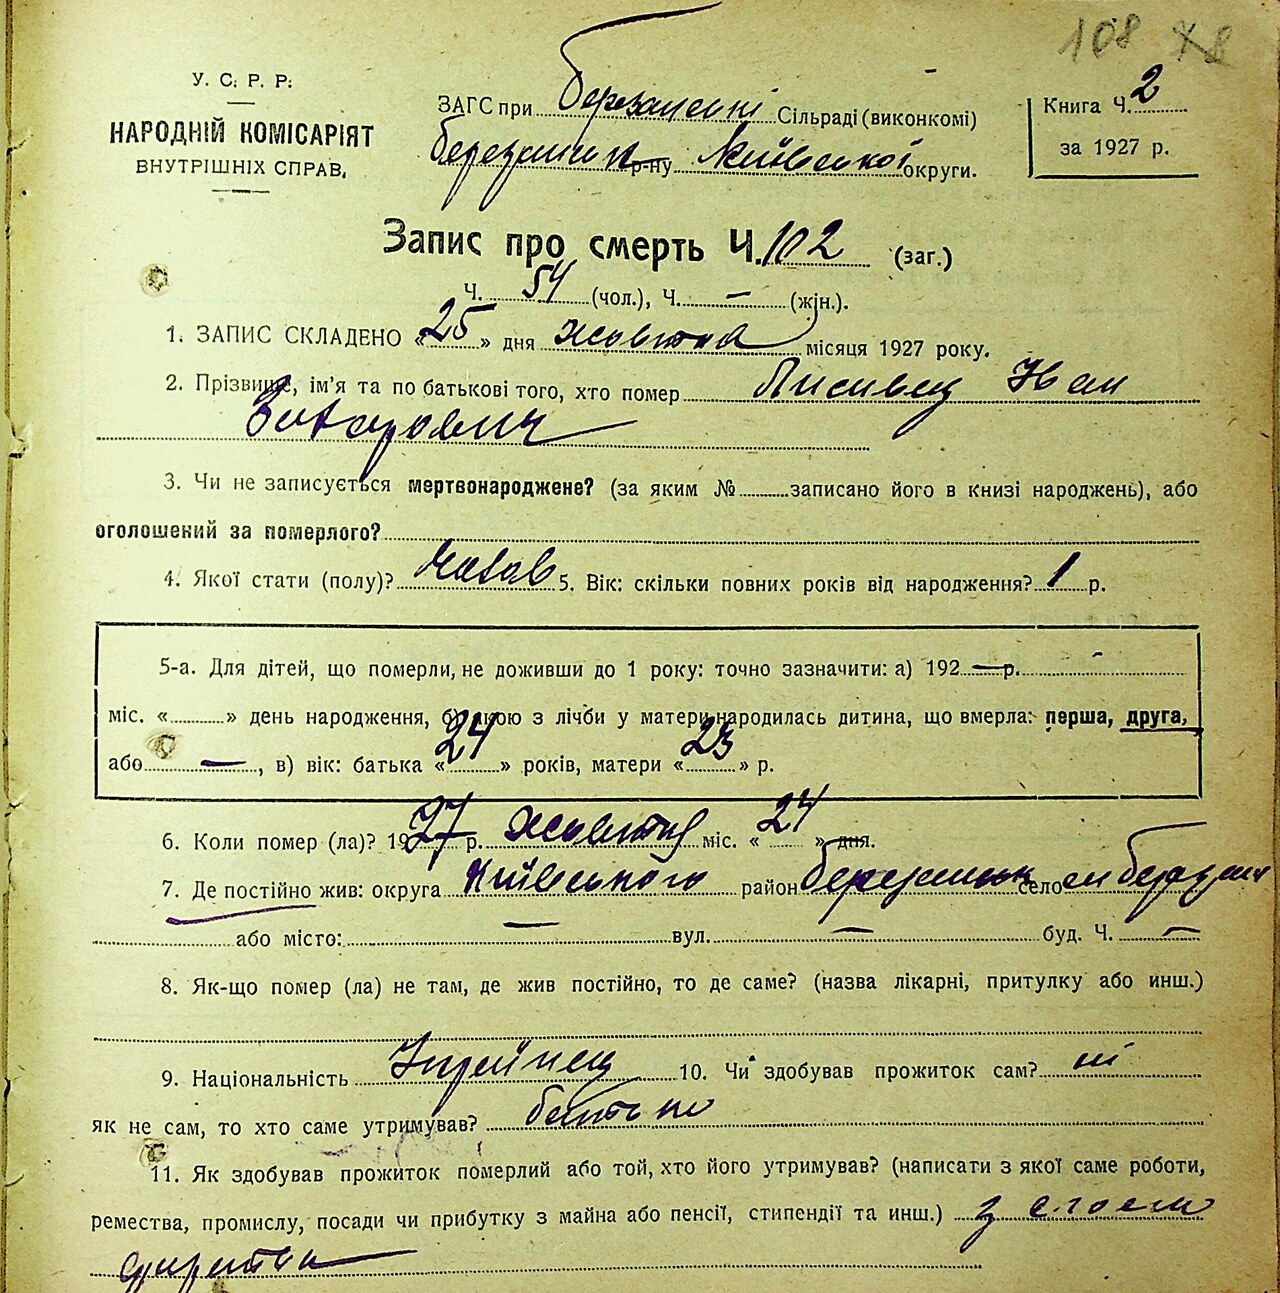 108 78
У. С. Р. Р.
НАРОДНІЙ КОМІСАРІЯТ
ВНУТРІШНІХ СПРАВ.
ЗАГС при Березанській Сільраді (виконкомі)
Березанськ р-ну Київської округи.
Книга Ч. 2
за 1927 р.
Запис про смерть Ч. 102 (заг.)
Ч. 54 (чол.), Ч. — (жін.).
1. ЗАПИС СКЛАДЕНО « 25 » дня жовтня місяця 1927 року.
2. Прізвище, ім'я та по батькові того, хто помер Лисивец Иван
Захарович
3. Чи не записується мертвонароджене? (за яким № записано його в книзі народжень), або
оголошений за померлого?
4. Якої стати (полу)? 5. Вік: скільки повних років від народження? 1 р.
5-а. Для дітей, що померли, не доживши до 1 року: точно зазначити: а) 192 — р. -
міс. « » день народження, б) якою з лічби у матери народилась дитина, що вмерла: перша, друга,
або —, в) вік: батька « 24 » років, матери « 23 » р.
6. Коли помер (ла)? 1927 р. жовтня міс. « 24 » дня.
7. Де постійно жив: округа Київського район Березанськ село м Березань
або місто: — вул. — буд. Ч. —
8. Як-що помер (ла) не там, де жив постійно, то де саме? (назва лікарні, притулку або инш.)
9. Національність Українец 10. Чи здобував прожиток сам? ні
як не сам, то хто саме утримував? батько
11. Як здобував прожиток померлий або той, хто його утримував? (написати з якої саме роботи,
ремества, промислу, посади чи прибутку з майна або пенсії, стипендії та инш.) з